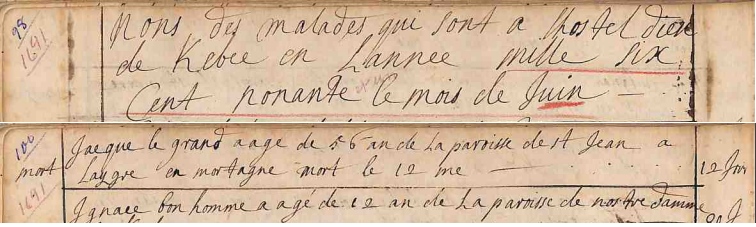 98
1691
Nons des malades qui sont a lhostel dieu
de Kebec en Lannee mille six
Cent nonante le mois de Juin
100
Jacque le grand aage de 56 an de La paroisse de st Jean a
mort Laygre en mortagne mort le 12 me 12
1691
Ignace bon homme a agé de 12 an de La paroisse de nostre damme